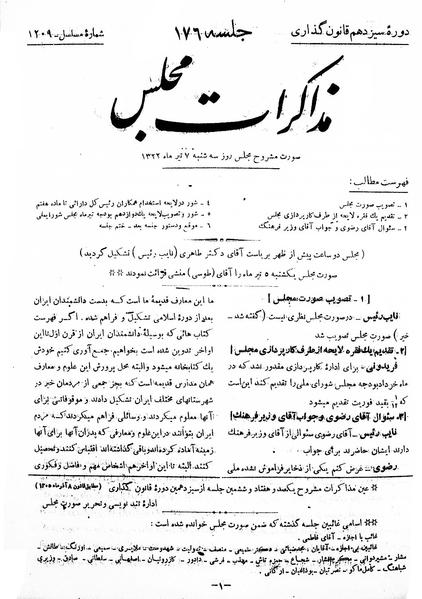 دورهٔ سیزدهم قانون گذاری
جلسه ۱۷۶
شمارهٔ مسلسل - ۱۲۰۹
مذاکرات مجلس
صورت مشروح مجلس روز سه شنبه ۷ تیر ماه ۱۳۲۲
فهرست مطالب:
۱ - تصویب صورت مجلس
۲ - تقدیم یك فقره لایحه از طرف کارپردازی مجلس
۳ - سئوال آقای رضوی و جواب آقای وزیر فرهنگ
۴ - شور در لایحه استخدام همکاران رئیس کل دارائی تا ماده هفتم
۵ - شور و تصویب لایحه یك دوازدهم بودجه تیر ماه مجلس شورایملی
۶ - موقع و دستور جلسه بعد - ختم جلسه
مجلس دو ساعت پیش از ظهر بریاست آقای دکتر طاهری (نایب رئیس) تشکیل گردید
صورت مجلس یکشنبه ۵ تیر ماه را آقای (طوسی) منشی قرائت نمودند
[۱ - تصویب صورت مجلس]
نایب رئیس - در صورت مجلس نظری نیست (گفته شد -
خیر) صورت مجلس تصویب شد
[۲ - تقدیم یك فقره لایحه از طرف کارپردازی مجلس]
فریدونی - برای ادارهٔ کارپردازی مقدور نشد که در
ماه خرداد بودجه مجلس شورای ملی را تقدیم کنند این است
که بقید فوریت تقدیم میشود
[۳ - سئوال آقای رضوی و جواب آقای وزیر فرهنگ]
نایب رئیس - آقای رضوی سئوالی از آقای وزیر فرهنگ
دارند ایشان حاضرند برای جواب
رضوی - عرض کنم یکی از ذخایر فراموش نشده ملی
ما این معارف قدیمهٔ ما است که بدست دانشمندان ایران
بعد از دورهٔ اسلامی تشکیل و فراهم شده. اگر فهرست
کتاب هائی که بوسیلهٔ دانشمندان ایران از قرن اول تا این
اواخر تدوین شده است بخواهیم جمع آوری کنیم خودش
یك کتابخانه میشود والبته محل پرورش این علوم و معارف
همان مدارس قدیمه است که بجز جمعی از مردمان خیر در
شهرستانهای مختلف ایران تشکیل دادند و موقوفاتی برای
آنها معلوم میکردند و وسائلی فراهم میکردند که مردم
ایران بتوانند در این علوم و معارفی که پدران آنها برای آنها
زمینه آماده کرده اند و باقی گذاشته اند اقتباس کنند و تحصیل
کنند. البته تا این اواخر هم اشخاص مهم و فاضل و فکوری
عین مذاکرات مشروح یکصد و هفتاد و ششمین جلسه از سیزدهمین دوره قانون گذاری (مطابق قانون ۸ آذر ماه ۱۳۰۵)
اداره تند نویسی و تحریر صورت مجلس
اسامی غائبین جلسه گذشته که ضمن صورت مجلس خوانده شده است:
غائب با اجازه - آقای فاطمی
غائبین بی اجازه - آقایان